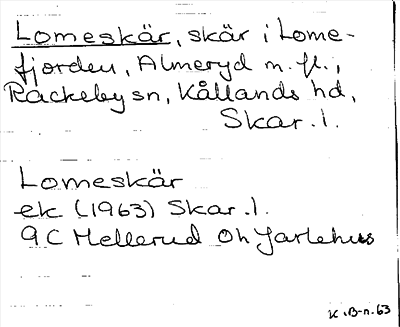 Lomeskär, skär i Lome-
fjorden, Almeryd m. fl.,
Rackeby sn, Kållands hd,
Skar. l.
Lomeskär
ek (1963) Skar. l.
9C Mellerud 0h Jarlehus
K. B-n. 63